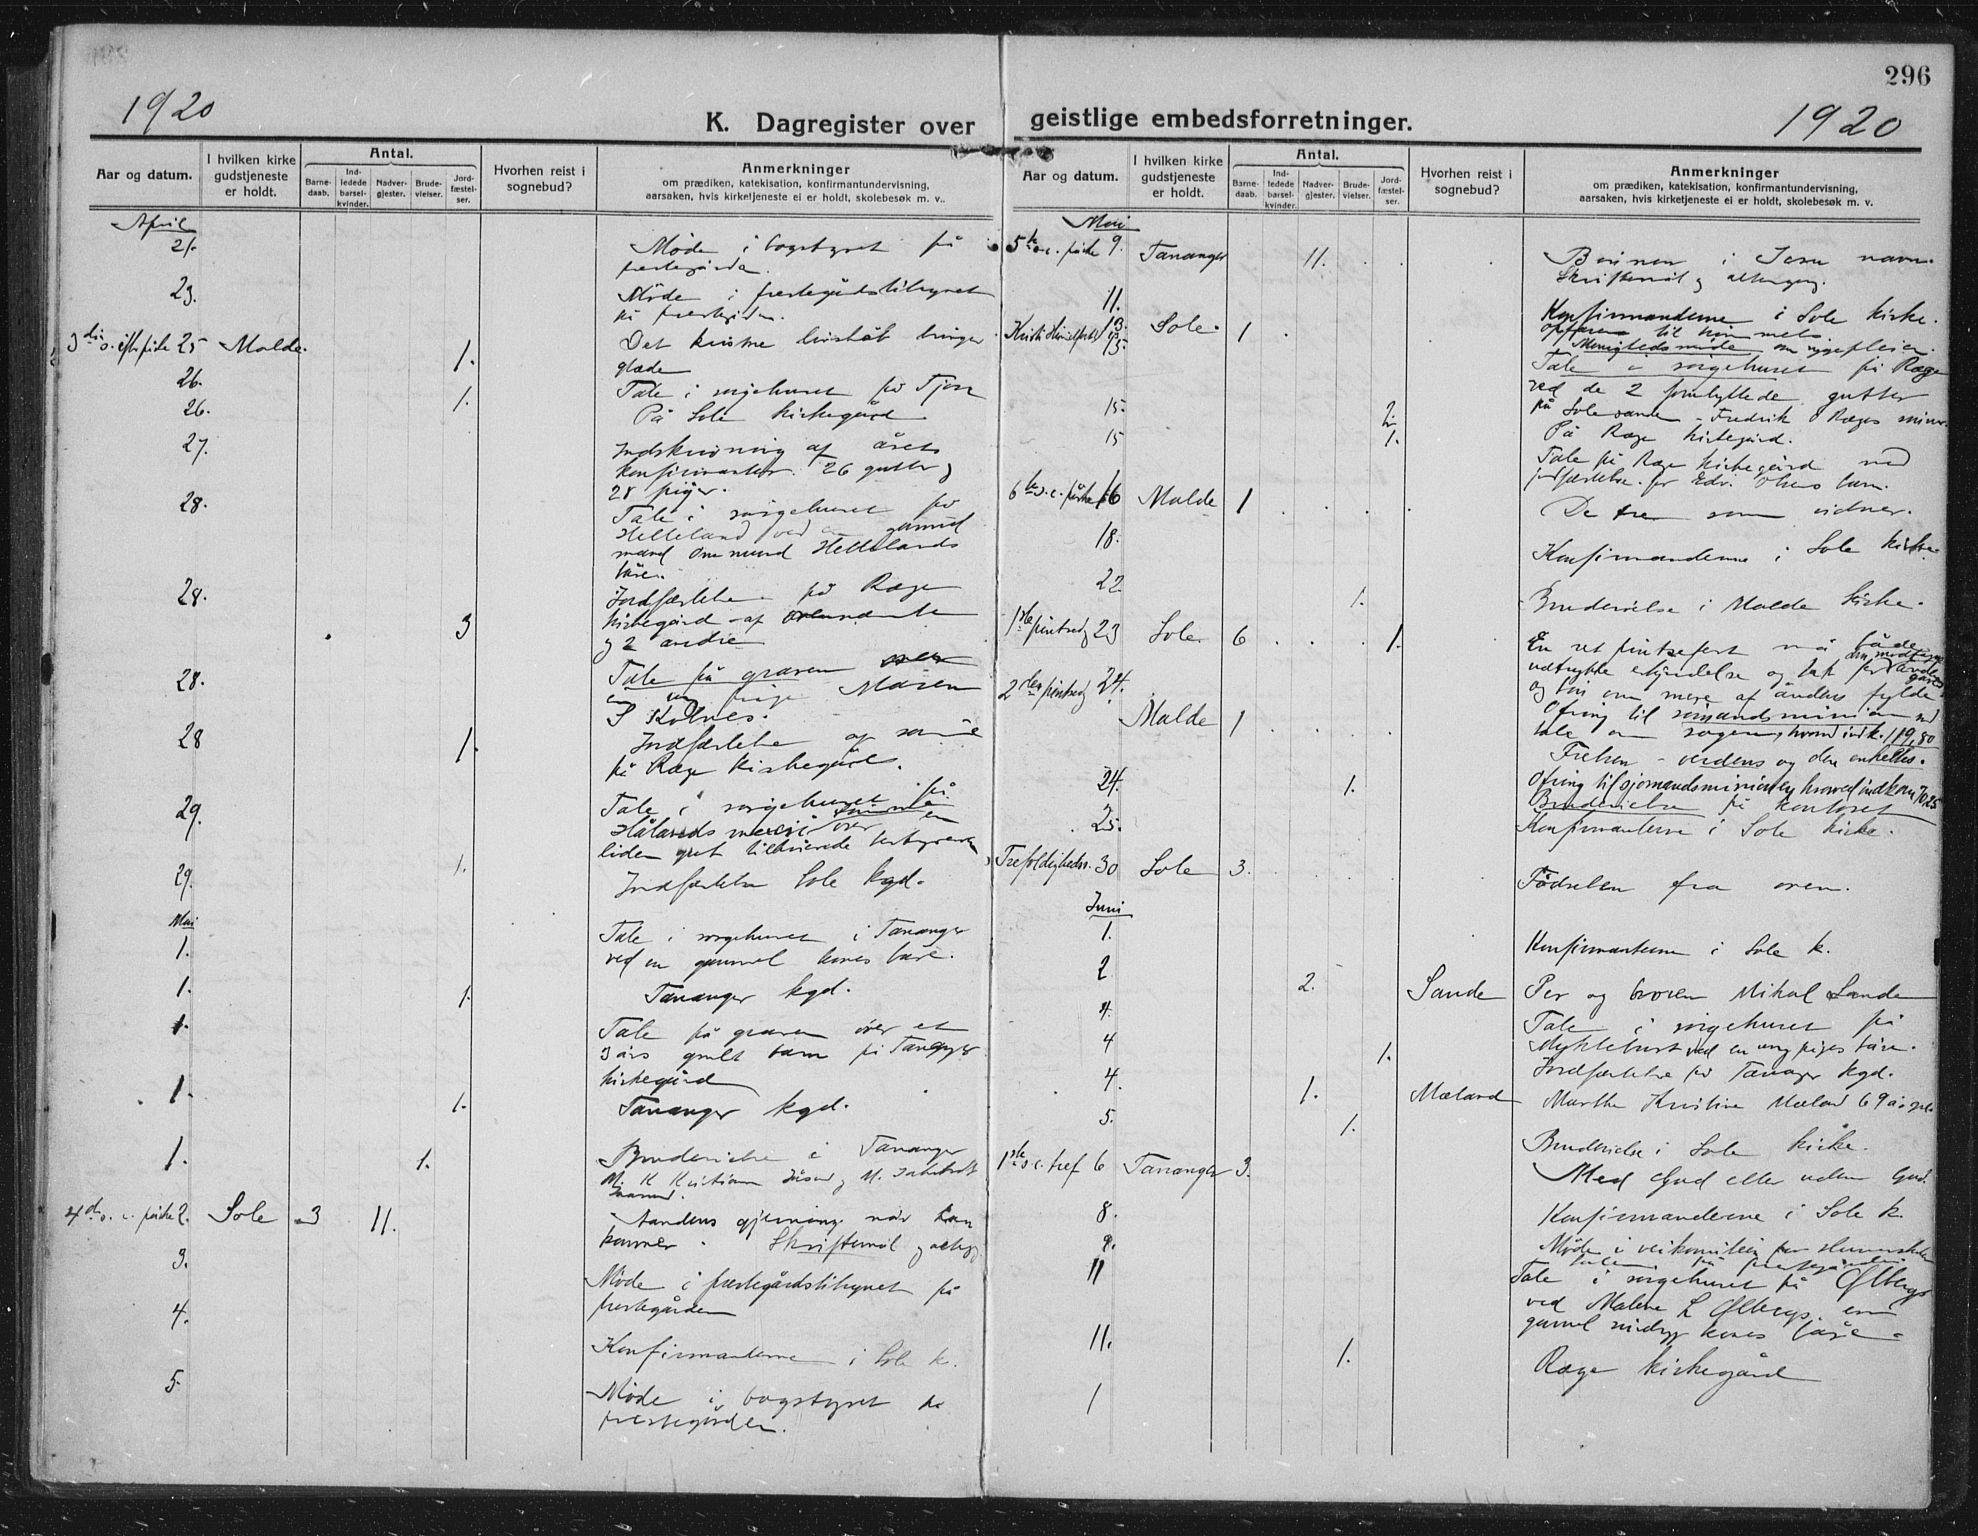 296
1920
K. Dagregister over geistlige embedsforretninger.
1920
Aar og datum.
I hvilken kirke gudstjeneste er holdt.
Antal.
Barne-daab.
Ind-ledede barsel-kvinder.
Nadver-gjester.
Brude-vielser.
Jord-fæstel-ser.
Hvorhen reist i sognebud?
Anmerkninger
om prædiken, katekisation, konfirmantundervisning,
aarsaken, hvis kirketjeneste ei er holdt, skolebesøk m. v..
April
21. Møde i bogstyret på
prestegården.
23. Møde i prestegårdstilsynet
på prestegården.
3die s. eft. påske 25 Malde. 1. Det kristne livshåb bringer
glæde
26. Tale i sorgehuset på Tjora
26. 1. På Sole kirkegård
27. Indskrivning af årets
konfirmanter. 26 gutter og
28 piger.
28. Tale i sorgehuset på
Helleland ved gammel
mand Hellelands
båre.
28. Jordfæstelse på Ræge
kirkegård af ovennævnte
3 og 2 andre
28. Tale på graven over
en ung pige Maren
S Kolnes.
28 1. Jordfæstelse af samme
på Ræge kirkegård.
29. Tale i sorgehuset på
Hålands
liden gut
29. 1. Jordfæstelse Sole kgd.
Mai
1. Tale i sorgehuset i Tananger
ved en gammel kones båre.
1. 1. Tananger kgd.
1. Tale på graven over et
3 års gmlt barn på Tananger
kirkegård
1. 1. Tananger kgd.
1. 1. Brudevielse i Tananger
M. K Kristian
4de s. e. påske 2. Sole 3 11. Aandens gjerning når han
kommer. Skriftemål og alterg.
3. Møde i prestegårdstilsynet på
prestegården
4. Konfirmanterne i Sole k.
5. Møde i bogstyret på
prestegården.
Aar og datum.
I hvilken kirke gudstjeneste er holdt.
Antal.
Barne-daab.
Ind-ledede barsel-kvinder.
Nadver-gjester.
Brude-vielser.
Jord-fæstel-ser.
Hvorhen reist i sognebud?
Anmerkninger
om prædiken, katekisation, konfirmantundervisning,
aarsaken, hvis kirketjeneste ei er holdt, skolebesøk m. v.
Mai
5te s. e. påske 9. Tananger 11. Bønnen i Jesu navn.
Skriftemål og altergang.
11. Konfirmanderne i Sole kirke.
Kristi Himmelfartsd 13. Sole 1 opfaren til himmels
15. Menighedsmøde om sygepleien.
Tale i sorgehuset på Ræge
ved de 2 forulykkede gutter
15. 2. på Sole sande - Fredrik Ræges
På Ræge kirkegård.
15 1. Tale på Ræge kirkegård med
jordfæstelse for Edv. Olsens barn.
6te s. e. påske 16 Malde 1 De tre som vidner.
18. Konfirmanderne i Sole kirke
22. 1. Brudevielse i Malde kirke.
1ste pinsedag 23 Sole 6 1. En ret pintsefest må både
udtrykke erkjendelse og tak for den modtagne
og bøn om mere af åndens fylde
Ofring til sømandsmission
2den pinsedag 24. Malde 1 tale om sagen, hvorved indk. 119,80
Frelsen - verdens og den enkeltes.
Ofring til sjømandsmissionen hvorved indkom 70,25
24. 1. Brudevielse på kontoret
25. Konfirmanterne i Sole kirke.
Trefoldighedss. 30 Sole 3. Fødselen fra oven.
Juni
1. Konfirmanterne i Sole k.
2 2. Sande Per og broren Mikal Sande
4. Tale i sorgehuset på
Myklebust ved en ung piges båre.
4 1. Jordfæstelse på Tananger kgd.
4. 1. Mæland Marthe Kristine Mæland 69 år gml
5. 1. Brudevielse i Sole kirke.
1ste s. e. tref 6 Tananger 3. Med Gud eller uden Gud.
8. Konfirmanderne i Sole k.
9. Møde i
på prestegården
11 Tale i sorgehuset på Ølberg
ved Malene L Ølbergs, en
gammel kones båre.
11. 1. Ræge kirkegård